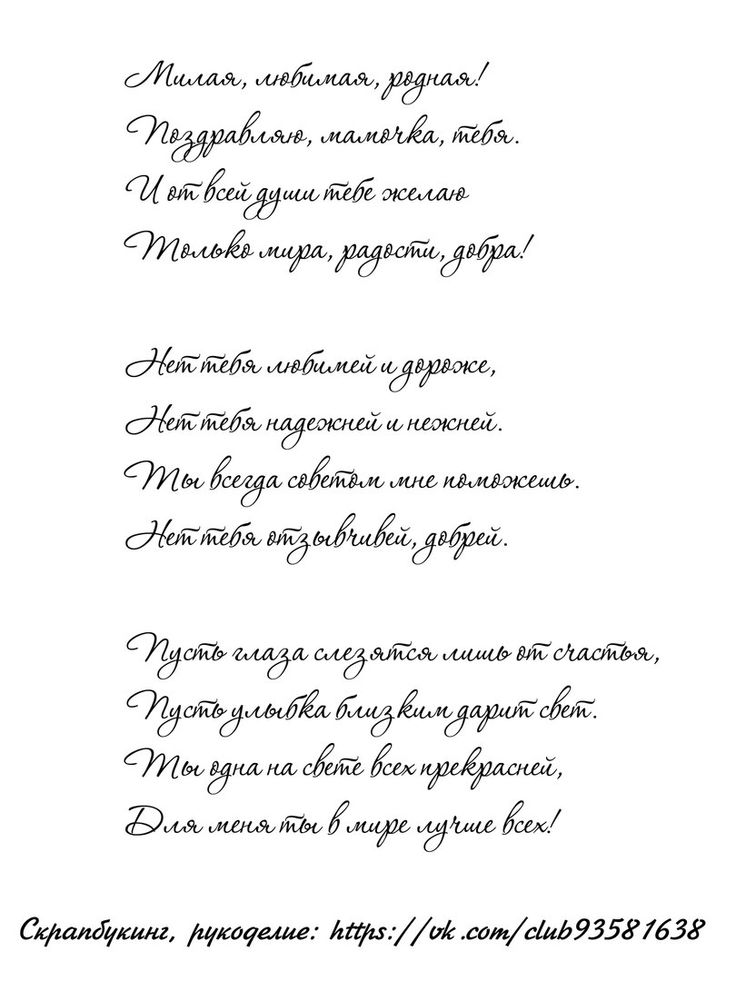 Милая, любимая, родная!
Поздравляю, мамочка, тебя.
И от всей души тебе желаю
Только мира, радости, добра!
Нет тебя любимей и дороже,
Нет тебя надежней и нежней.
Ты всегда советом мне поможешь.
Нет тебя отзывчивей, добрей.
Пусть глаза слезятся лишь от счастья,
Пусть улыбка близким дарит свет.
Ты одна на свете всех прекрасней,
Для меня ты в мире лучше всех!
Скрапбукинг, рукоделие: https://vk.com/club93581638